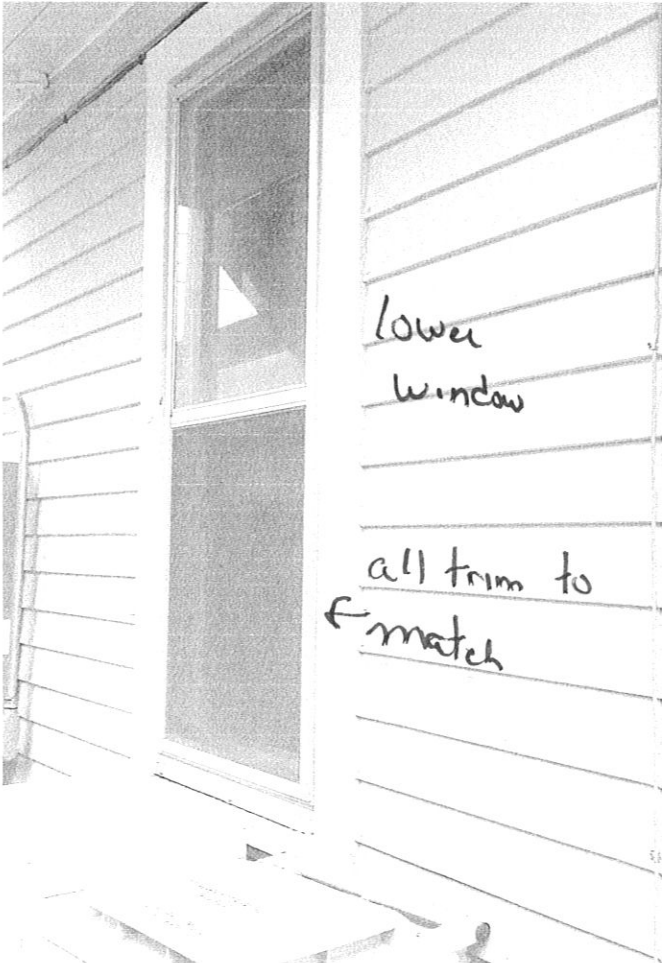 lower
window
all trim to
← match